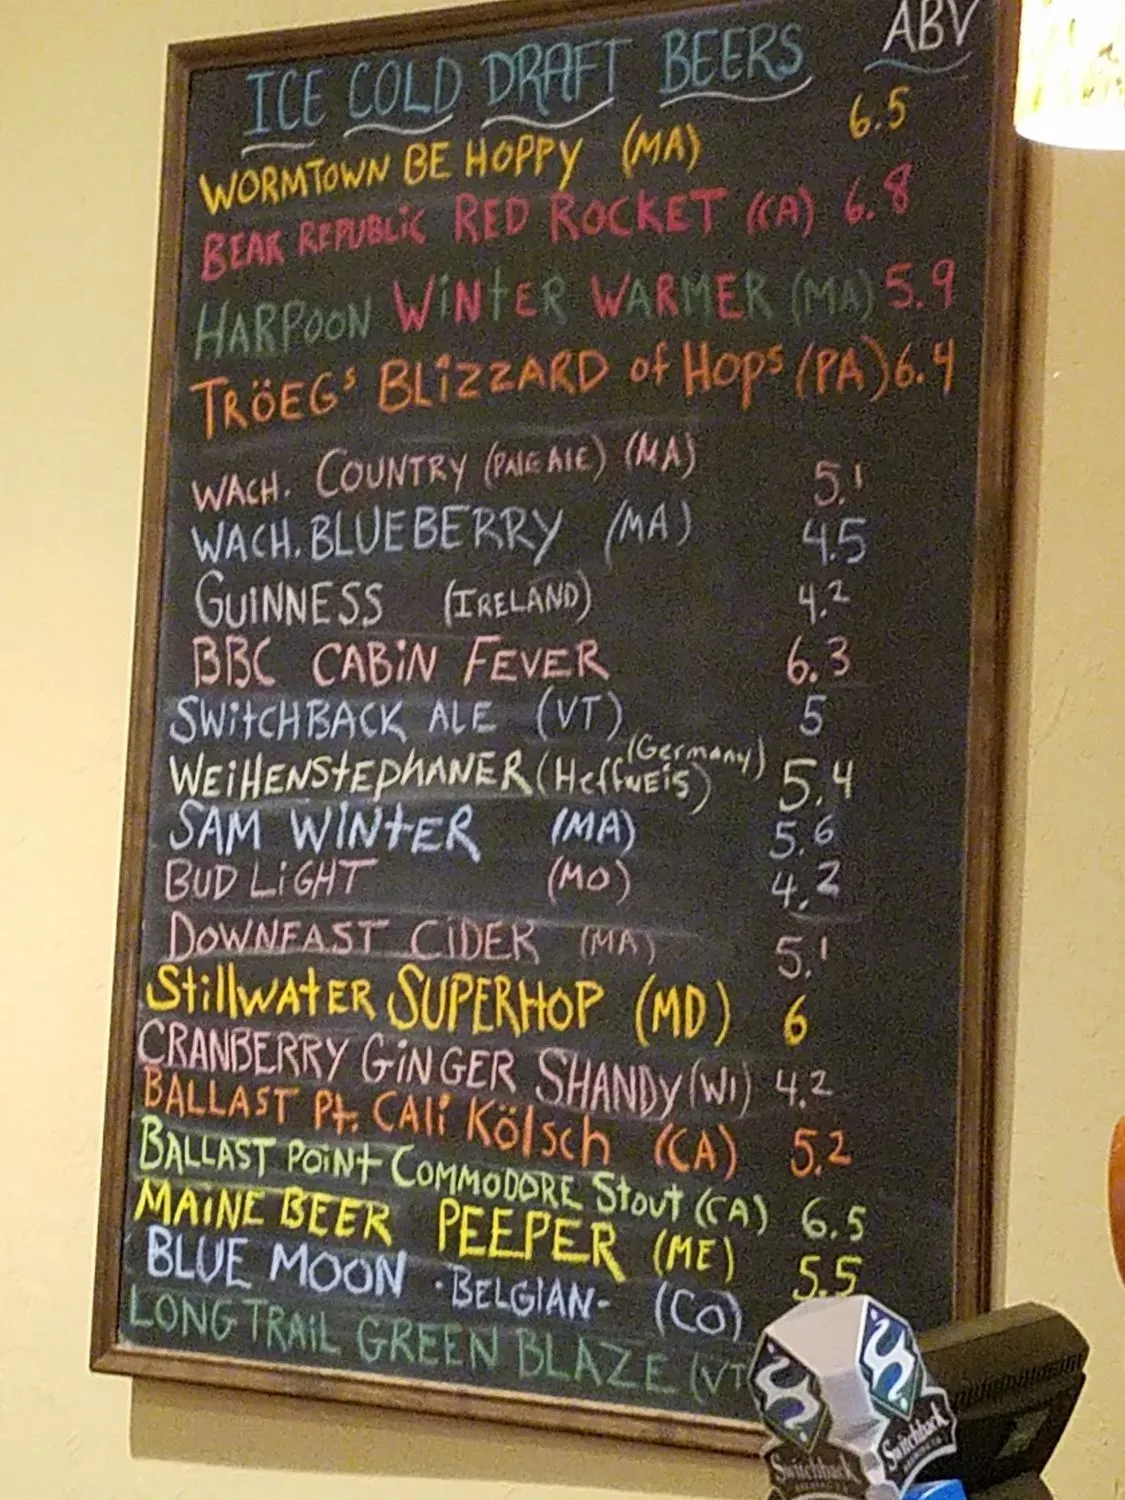 ICE COLD DRAFT BEERS ABV
WORMTOWN BE HOPPY (MA) 6.5
BEAR REPUBLIC RED ROCKET (CA) 6.8
HARPOON WINTER WARMER (MA) 5.9
TRÖEGS BLIZZARD of HOPS (PA) 6.4
WACH. COUNTRY (PALE ALE) (MA) 5.1
WACH. BLUEBERRY (MA) 4.5
GUINNESS (IRELAND) 4.2
BBC CABIN FEVER 6.3
SWITCHBACK ALE (VT) 5
(Germany)
WEIHENSTEPHANER (HeffWEIS) 5.4
SAM WINTER (MA) 5.6
BUD LIGHT (MO) 4.2
DOWNEAST CIDER (MA) 5.1
Stillwater SUPERHOP (MD) 6
CRANBERRY GINGER SHANDY (WI) 4.2
BALLAST Pt. CALi Kölsch (CA) 5.2
BALLAST POINT COMMODORE Stout (CA) 6.5
MAINE BEER PEEPER (ME) 5.5
BLUE MOON -BELGIAN- (CO)
LONG TRAIL GREEN BLAZE (VT
Switchback
Switchback